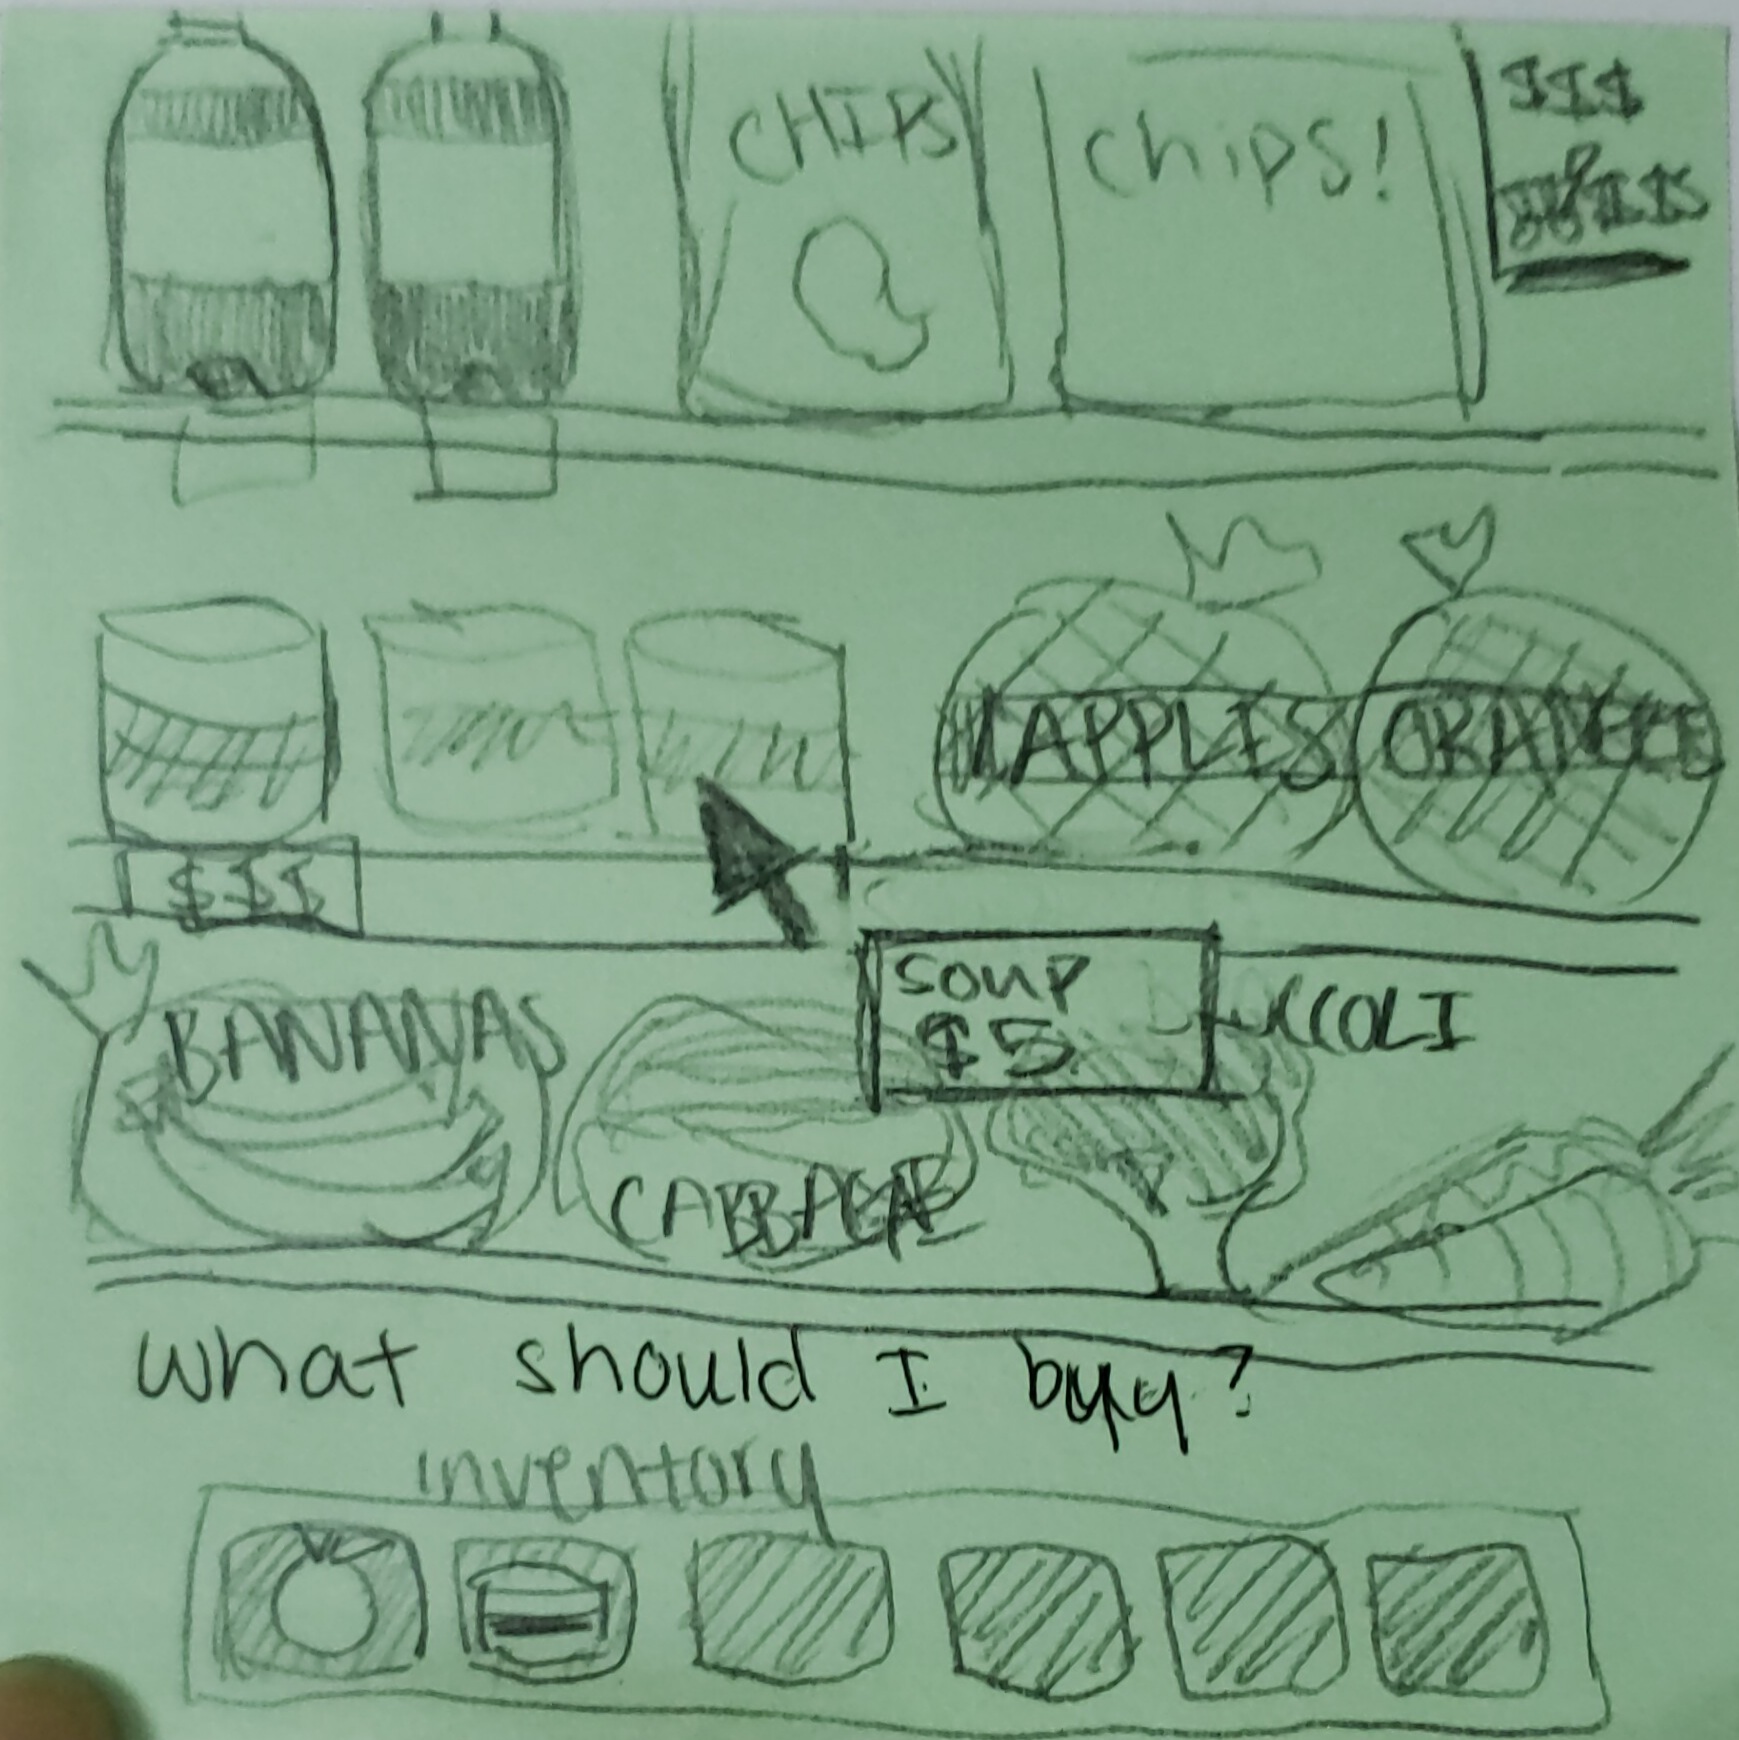 CHIPS
chips!
$$$
APPLES
ORANGES
$$$
SOUP
$5
BANANAS
CCOLI
CABBAGE
what should I buy?
inventory